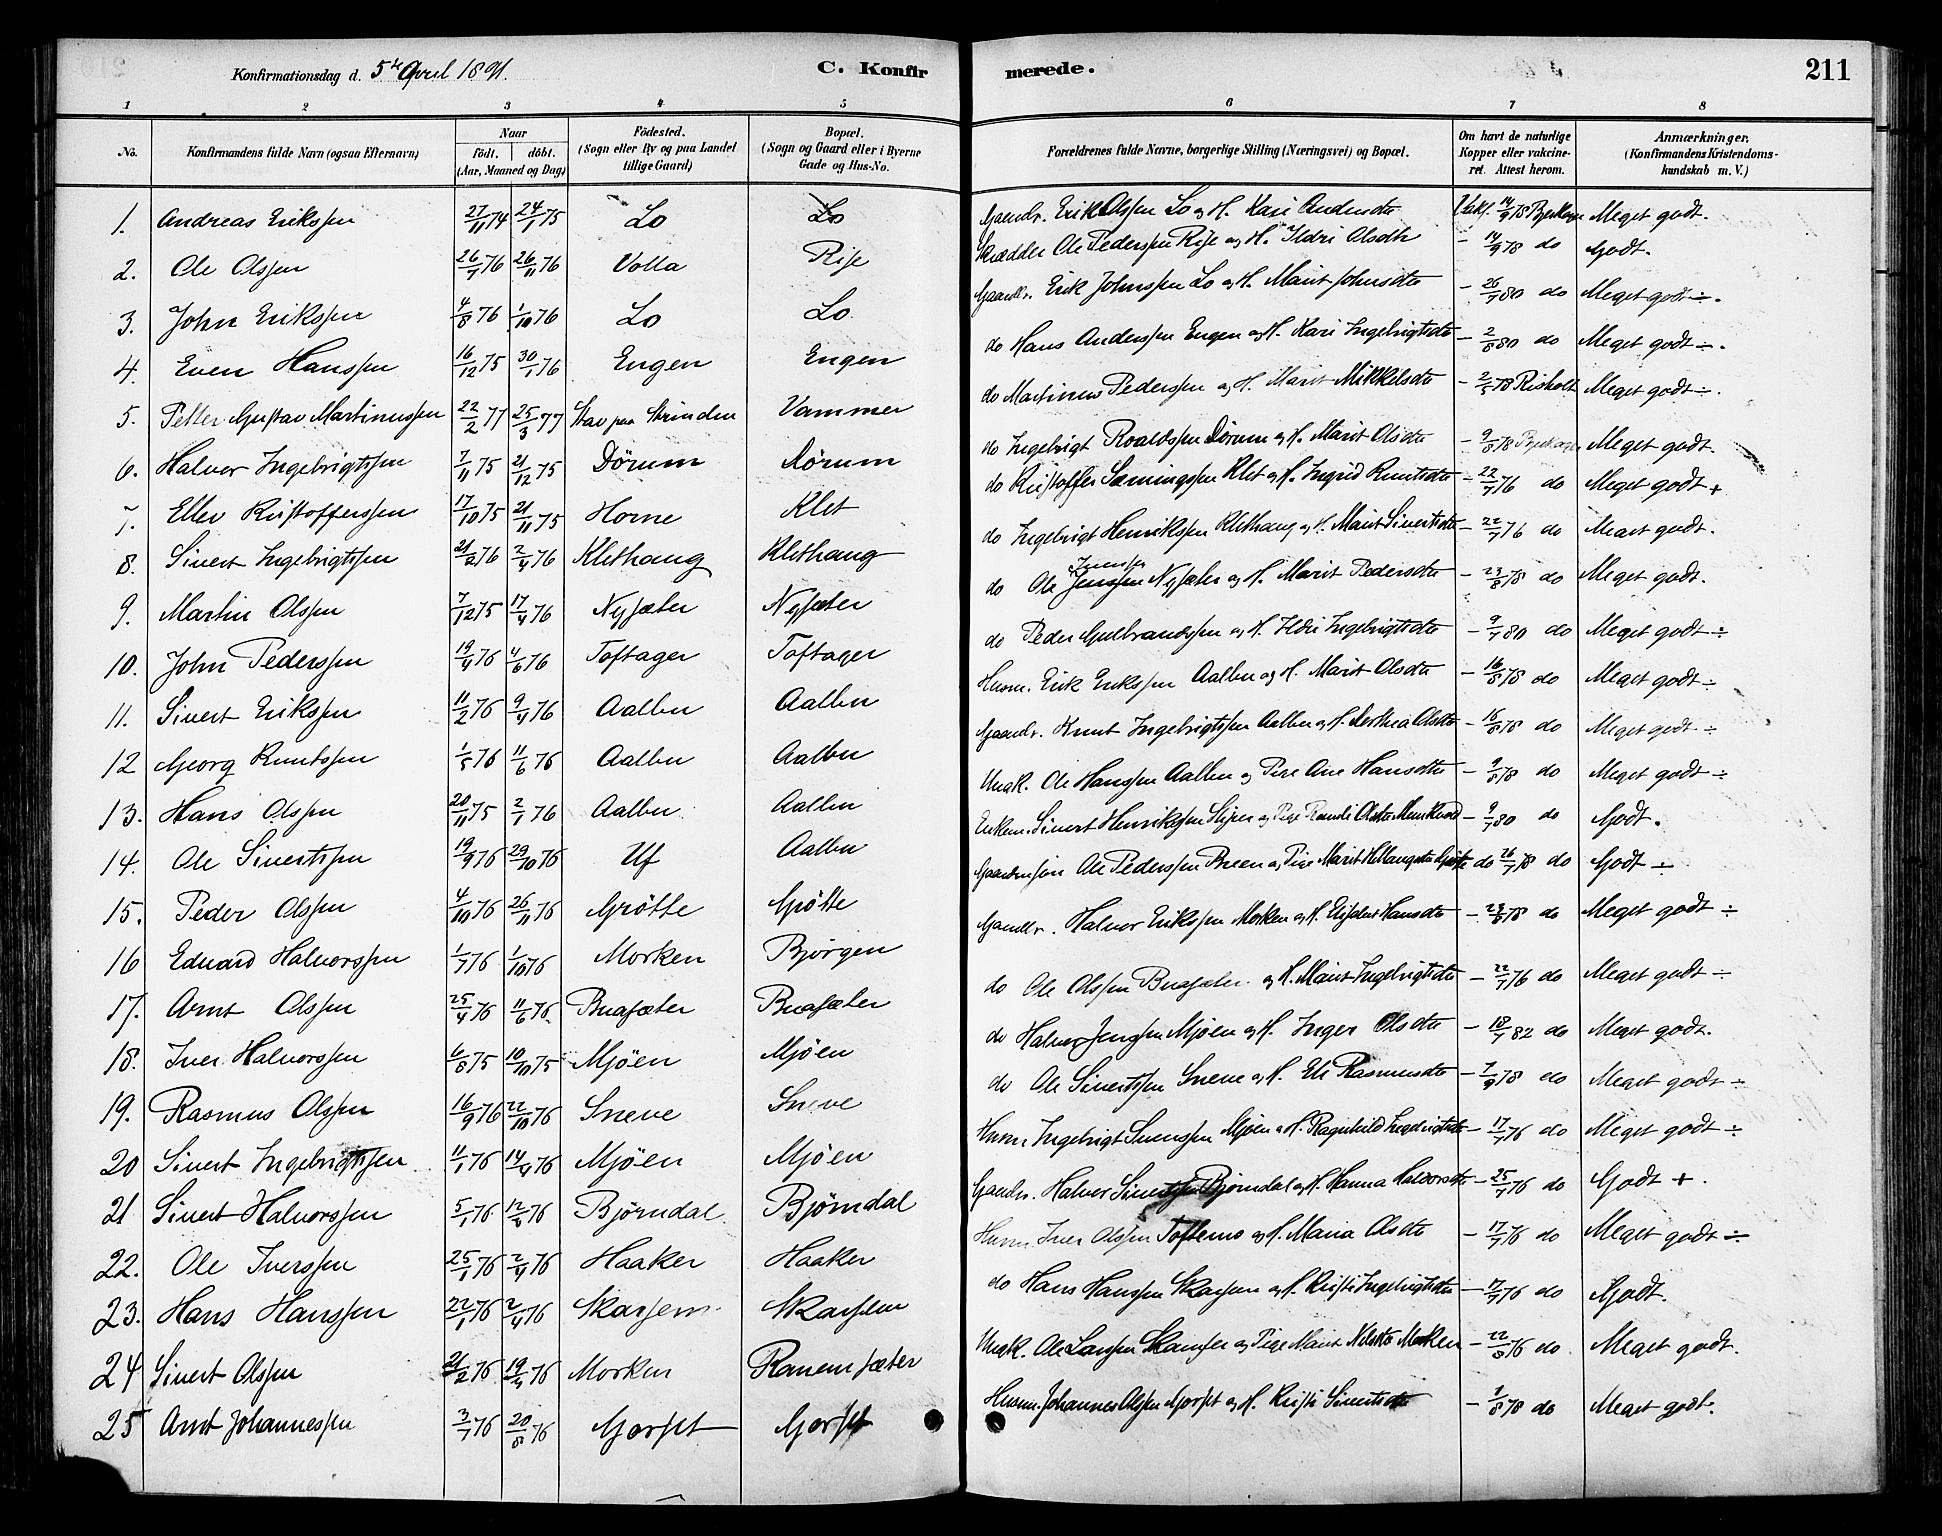 Konfirmationsdag d. 5te April 1891. C. Konfirmerede. 211
1 2 3 4 5 6 7 8
No. Konfirmandens fulde Navn (ogsaa Efternavn) Naar födt. döbt. (Aar, Maaned og Dag) Födested. (Sogn eller By og paa Landet tillige Gaard) Bopæl. (Sogn og Gaard eller i Byerne Gade og Hus-No. Forældrenes fulde Navne, borgerlige Stilling (Næringsvei) og Bopæl. Om havt de naturlige Kopper eller vakcineret. Attest herom. Anmærkninger. (Konfirmandens Kristendomskundskab m. V.)
1. Andreas Erikssen 27/11 74 24/1 75 Lo Lo Gaardbr. Erik Olssen Lo og H. Kari Andersdtr Vakc. 14/9 78 Meget godt.
2. Ole Olssen 26/7 76 26/11 76 Volla Rise Skrædder Ole Pederssen Rise og H. Ildri Olsdtr - 14/9 78 do Godt.
3. John Erikssen 4/8 76 1/10 76 Lo Lo Gaardbr. Erik Johnssen Lo og H. Marit Johnsdtr - 26/7 80 do Meget godt ÷.
4. Even Hanssen 16/12 75 30/1 76 Engen Engen do Hans Anderssen Engen og H. Kari Ingebrigtsdtr - 2/8 80 do Meget godt ÷.
5. Petter Gustav Martinussen 22/2 77 25/3 77 Stav paa Strinden Vammer do Martinus Pederssen og H. Marit Mikkelsdtr - 2/5 78 Risholt Meget godt ÷.
6. Halvor Ingebrigtssen 7/11 75 21/12 75 Dörum Dörum do Ingebrigt Roaldssen Dörum og H. Marit Olsdtr - 9/8 78 Meget godt.
7. Ellev Kristofferssen 17/10 75 21/11 75 Horne Klet do Kristoffer Sæmingssen Klet og H. Ingrid Knutsdtr - 22/7 76 do Meget godt +
8. Sivert Ingebrigtssen 21/2 76 2/4 76 Klethaug Klethaug do Ingebrigt Henrikssen Klethaug og H. Marit Sivertsdtr - 22/7 76 do Meget godt.
9. Martin Olssen 7/12 75 17/4 76 Nysæter Nysæter do Ole Jenssen Iverssen Nysæter og H. Marit Pedersdtr - 23/8 78 do Meget godt.
10. John Pederssen 19/4 76 4/6 76 Toftager Toftager do Peder Gulbrandssen og H. Ildri Ingebrigtsdtr - 9/7 80 do Meget godt ÷
11. Sivert Erikssen 11/2 76 9/4 76 Aalbu Aalbu Husm. Erik Erikssen Aalbu og H. Marit Olsdtr - 16/8 78 do Meget godt ÷
12 Georg Knutssen 1/5 76 11/6 76 Aalbu Aalbu Gaardbr. Knut Ingebrigtssen Aalbu og H. Dorthea Olsdtr - 16/8 78 do Meget godt ÷
13. Hans Olssen 20/11 75 2/1 76 Aalbu Aalbu Ungk. Ole Hanssen Aalbu og Pige Ane Hansdtr - 9/8 78 do Meget godt ÷
14. Ole Sivertssen 19/9 76 29/10 76 Uf Aalbu Enkem. Sivert Henrikssen Stjern og Pige Randi Olsdtr - 9/7 80 do Godt.
15. Peder Olssen 4/10 76 26/11 76 Grötte Grötte Gaardmsön Ole Pederssen Breen og Pige Marit do 26/7 78 do Godt ÷
16 Edvard Halvorssen 1/7 76 1/10 76 Morken Björgen Gaardbr. Halvor Erikssen Morken og H. Hansdtr - 23/8 78 do Meget godt ÷
17. Arnt Olssen 25/4 76 11/6 76 Buasæter Buasæter do Ole Olssen Buasæter og H. Marit Ingebrigtsdtr - 22/7 76 do Meget godt ÷
18. Iver Halvorssen 6/8 75 10/10 75 Mjöen Mjöen do Halvor Jenssen Mjöen og H. Inger Olsdtr - 18/7 82 do Meget godt.
19. Rasmus Olssen 16/9 76 22/10 76 Sneve Sneve do Ole Sivertssen Sneve og H. Eli Rasmusdtr - 7/9 78 do Meget godt ÷
20 Sivert Ingebrigtssen 11/1 76 14/4 76 Mjöen Mjöen Husm Ingebrigt Svenssen Mjöen og H. Ragnhild Ingebrigtsdtr - 17/7 76 do Meget godt ÷
21 Sivert Halvorssen 5/1 76 12/3 76 Björndal Björndal Gaardbr. Halvor Sivertssen Björndal og H. Hanna Halvorsdtr - 25/7 76 do Godt +.
22. Ole Iverssen 25/1 76 2/4 76 Haaker Haaker Husm Iver Olssen Toftemo og H. Maria Olsdtr - 17/7 76 do Meget godt ÷
23. Hans Hanssen 22/1 76 2/4 76 Skarsem Skarsem do Hans Hanssen Skarsem og H. Kristi Ingebrigtsdtr - 17/7 76 do Godt.
24 Sivert Olssen 21/2 76 19/4 76 Morken Ranemsæter Ungk. Ole Larssen og Pige Marit Nilsdtr Morken - 22/8 76 do Meget godt.
25 Arnt Johannessen 3/7 76 20/8 76 Gorset Gorset Husm. Johannes Olssen Gorset og H. Kristi Sivertsdtr - 7/8 78 do Meget godt.